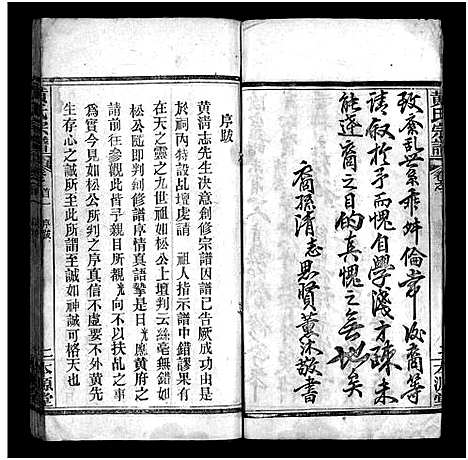 黄氏宗譜
致紊乱世系乖舛倫常後裔等
請叙於予而愧自學淺才疎未
能遂裔之目的真愧之無地矣
裔孫清志思賢薰沐敬書
本源堂
序跋
黄清志先生決意創修宗譜因譜已告厥成功由是
於祠內特設乩壇虔請 祖人指示譜中錯謬果有
在天之靈之九世祖如松公上壇判云絲毫無錯如
松公隨即判創修譜序情真語摯是日 光應黄府之
前往參觀此皆予親目所覩 光向不以扶乩之事
為實今見如松公所判之序真信不虛要不外黄先
生存心之誠有以致此所謂至誠如神誠可格天也
黄氏宗譜
序跋
二
本源堂